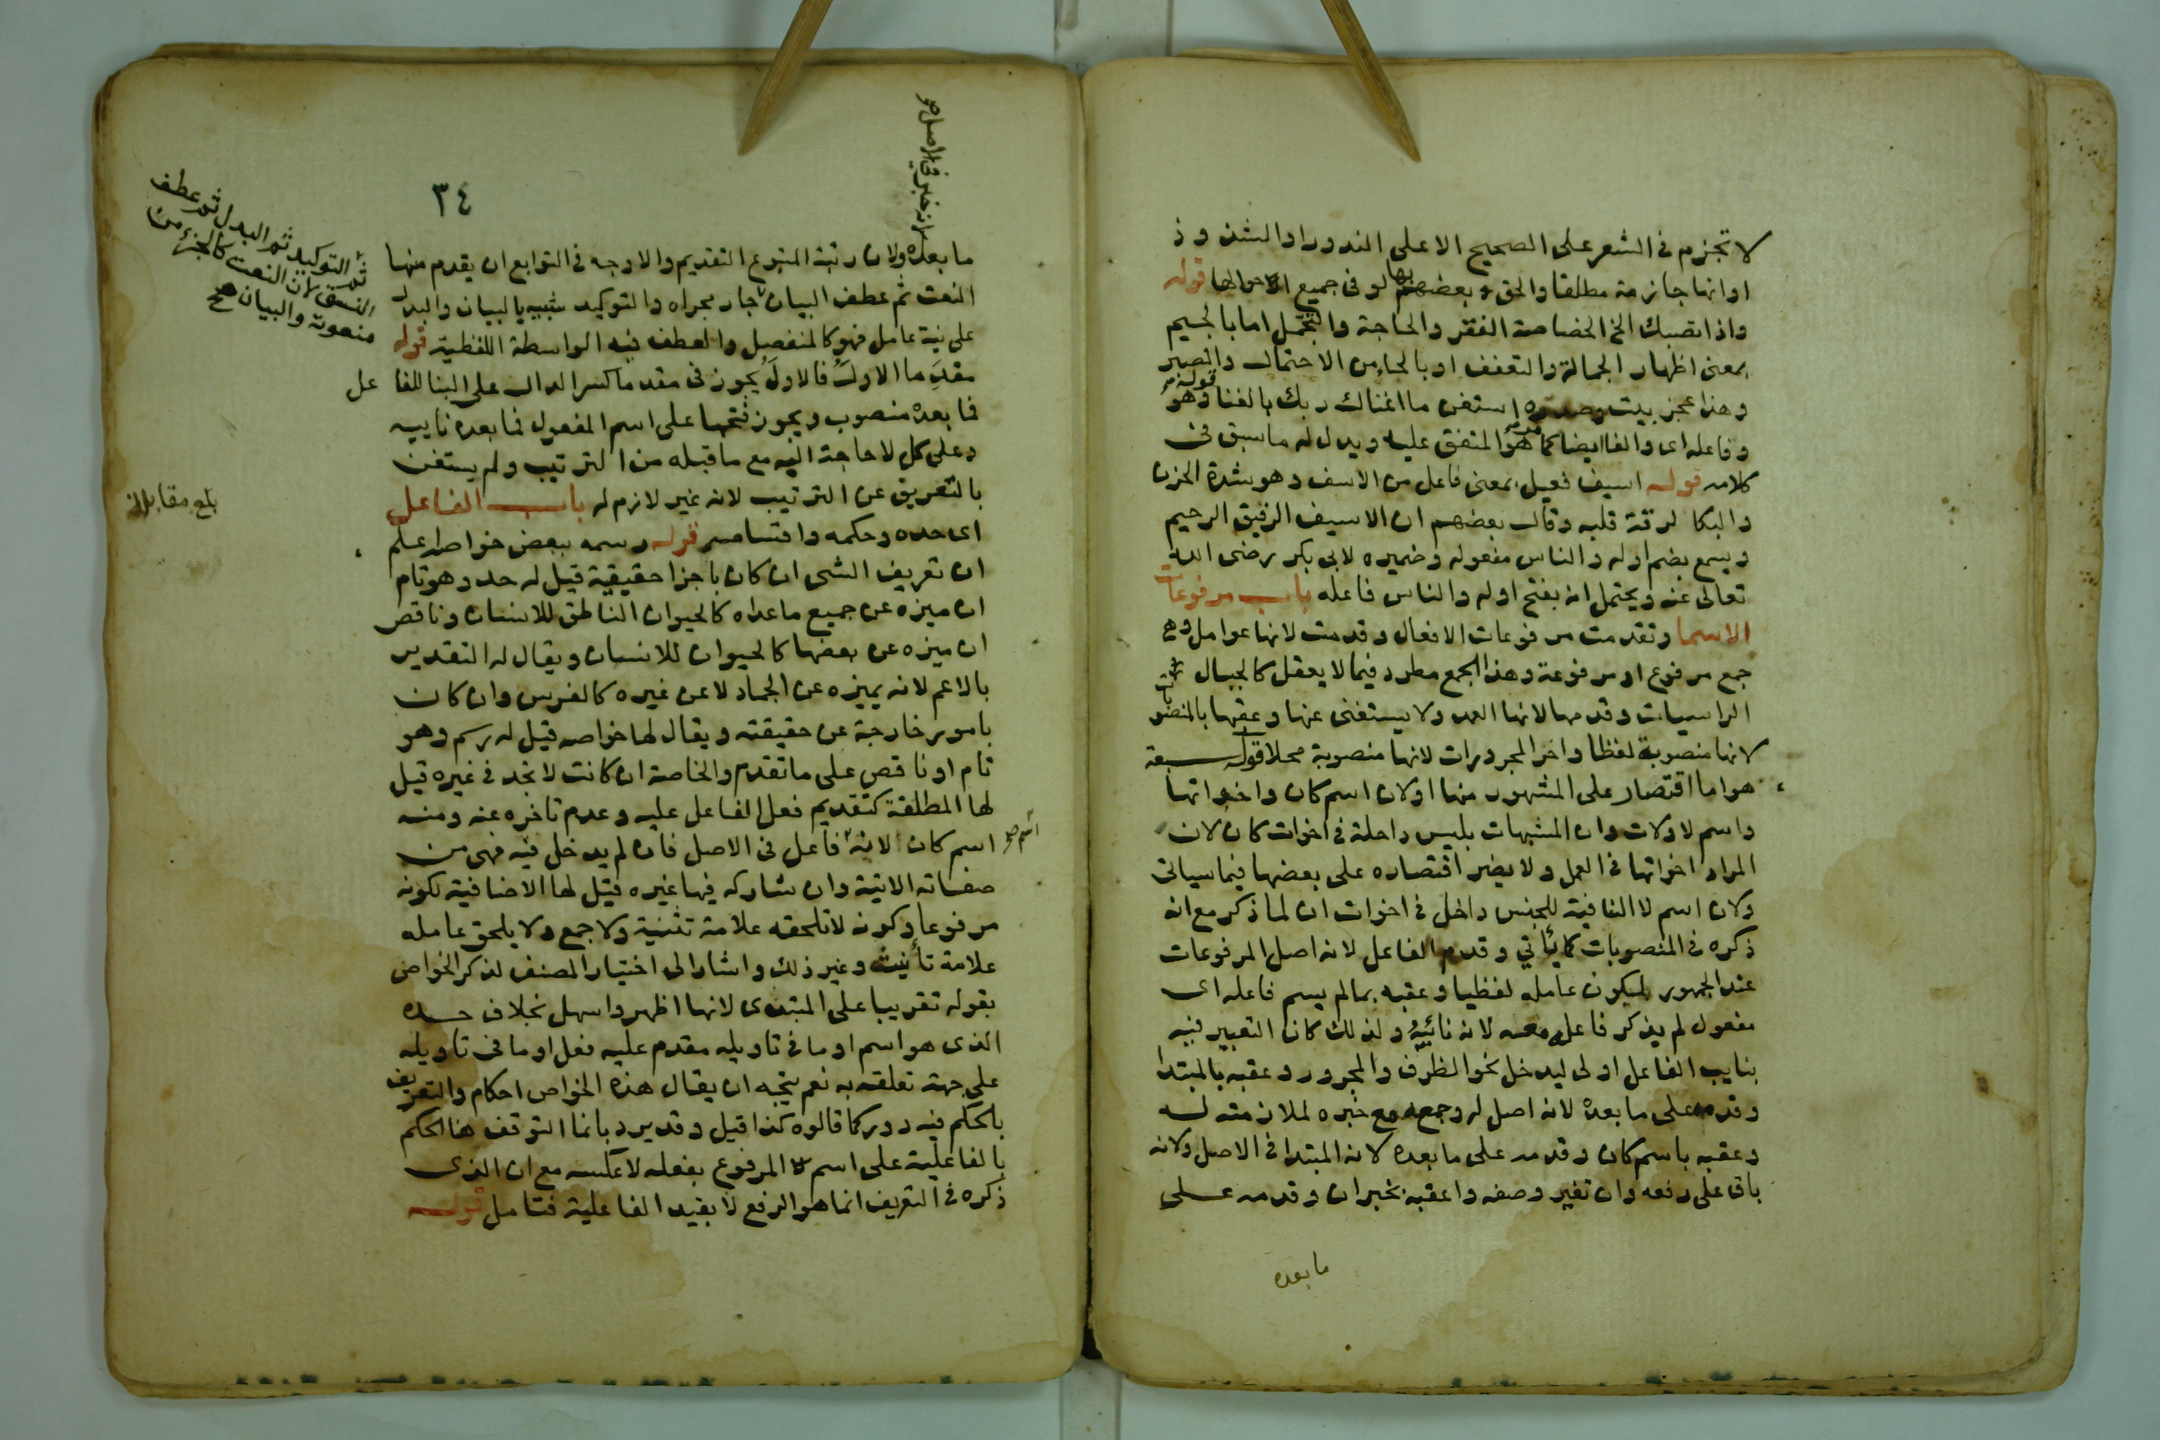 لا تجزم فى الشعر على الصحيح الا على الندور او الشذوذ
او انها جازمة مطلقا والحق بعضهم بها لو فى جميع احوالها قوله
واذا تصبك الخ الخصاصة الفقر والحاجة والتجمل اما بالجيم
بمعنى اظهار الجمالة والتعفف او بالحاء من الاحتمال والصبر
وهذا عجز بيت وصدره استغن ما اغناك ربك بالغنا قوله وهو
وفاعله اى والفا ايضا كما هو المتفق عليه ويدل له ما سبق فى
كلامه قوله اسيف فعيل بمعنى فاعل من الاسف وهو شدة الحزن
والبكا لرقة قلبه وقال بعضهم ان الاسيف الرقيق الرحيم
ويسمع بضم اوله والناس مفعوله وضميره لابى بكر رضى الله
تعالى عنه ويحتمل انه بفتح اوله والناس فاعله باب مرفوعات
الاسما وتقدمت مرفوعات الافعال وقدمت لانها عوامل وهى
جمع مرفوع او مرفوعة وهذا الجمع مطرد فيما لا يعقل كالجبال
الراسيات وقدمها لانها العمد ولا يستغنى عنها وعقبها بالمنصوبات
لانها منصوبة لفظا واخر المجرورات لانها منصوبة محلا قوله سبعة
هو اما اقتصار على المشهور منها او لان اسم كان واخواتها
واسم لا ولات وان المشبهات بليس داخلة فى اخوات كان لان
المراد اخواتها فى العمل ولا يضر اقتصاره على بعضها فيما سياتى
ولان اسم لا النافية للجنس داخل فى اخوات ان لما ذكر مع انه
ذكره فى المنصوبات كما ياتي وقدم الفاعل لانه اصل المرفوعات
عند الجمهور لكون عامله لفظيا وعقبه بما لم يسم فاعله اى
مفعول لم يذكر فاعله معه لانه نائبه ولذلك كان التعبير فيه
بنايب الفاعل اولى ليدخل نحو الظرف والمجرور وعقبه بالمبتدا
وقدمه على ما بعده لانه اصل له وجمعه مع خبره لملازمته له
وعقبه باسم كان وقدمه على ما بعده لانه المبتدا فى الاصل ولانه
باق على رفعه وان تغير وصفه واعقبه بخبر ان وقدمه على
ما بعده
٣٤
لانه خبر فى الاصل صح
ما بعده ولان رتبة المتبوع التقديم والاوجه فى التوابع ان يقدم منها
النعت ثم عطف البيان جار مجراه والتوكيد شبيه بالبيان والبدل
على نية عامل فهو كالمنفصل والعطف فيه الواسطة اللفظية قوله
مقدما الاول فالاول يجوز فى مقدما كسر الدال على البنا للفاعل
فما بعده منصوب ويجوز فتحها على اسم المفعول فما بعده نايبه
وعلى كل لا حاجة اليه مع ما قبله من الترتيب ولم يستغن
بالتعريف عن الترتيب لانه غير لازم له باب الفاعل
اى حده وحكمه واقسامه قوله رسمه ببعض خواصه اعلم
ان تعريف الشى ان كان باجزا حقيقية قيل له حد وهو تام
ان ميزه عن جميع ما عداه كالحيوان الناطق للانسان وناقص
ان ميزه عن بعضها كالحيوان للانسان ويقال له التقدير
بالاعم لانه يميزه عن الجماد لا عن غيره كالفرس وان كان
بامور خارجة عن حقيقته ويقال لها خواصه قيل له رسم وهو
تام او ناقص على ما تقدم والخاصة ان كانت لا تجد فى غيره قيل
لها المطلقة كتقديم فعل الفاعل عليه وعدم تاخره عنه ومنه
اسم كان لانه فاعل فى الاصل فان لم يدخل فيه فهى من
صفاته الاتية وان شاركه فيها غيره قيل لها الاضافية لكونه
مرفوعا وكونه لا تلحقه علامة تثنية ولا جمع ولا يلحق عامله
علامة تأنيث وغير ذلك واشار الى اختيار المصنف لذكر الخواص
بقوله تقريبا على المبتدى لانها اظهر واسهل بخلاف حده
الذى هو اسم او ما فى تاويله مقدم عليه فعل او ما فى تاويله
على جهة تعلقه به نعم يتجه ان يقال هذه الخواص احكام والتعريف
بالحكم فيه دور كما قالوه كذا قيل وقد يرد بانما التوقف هنا الحكم
بالفاعلية على اسم المرفوع بفعله لا عكسه مع ان الذى
ذكره فى التعريف انما هو الرفع لا بقيد الفاعلية فتامل قوله
ثم التوكيد ثم البدل ثم عطف
النسق لان النعت كالجزء من
منعوته والبيان صح
بلغ مقابلة
اسم صح